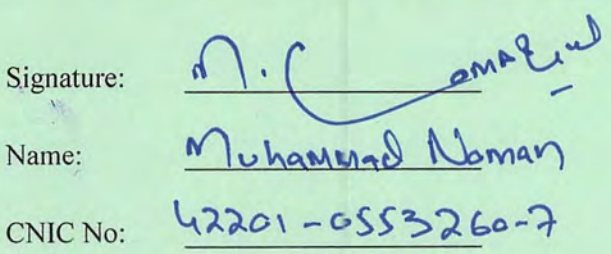 Signature:
Name: Muhammad Noman
CNIC No: 42201-0553260-7